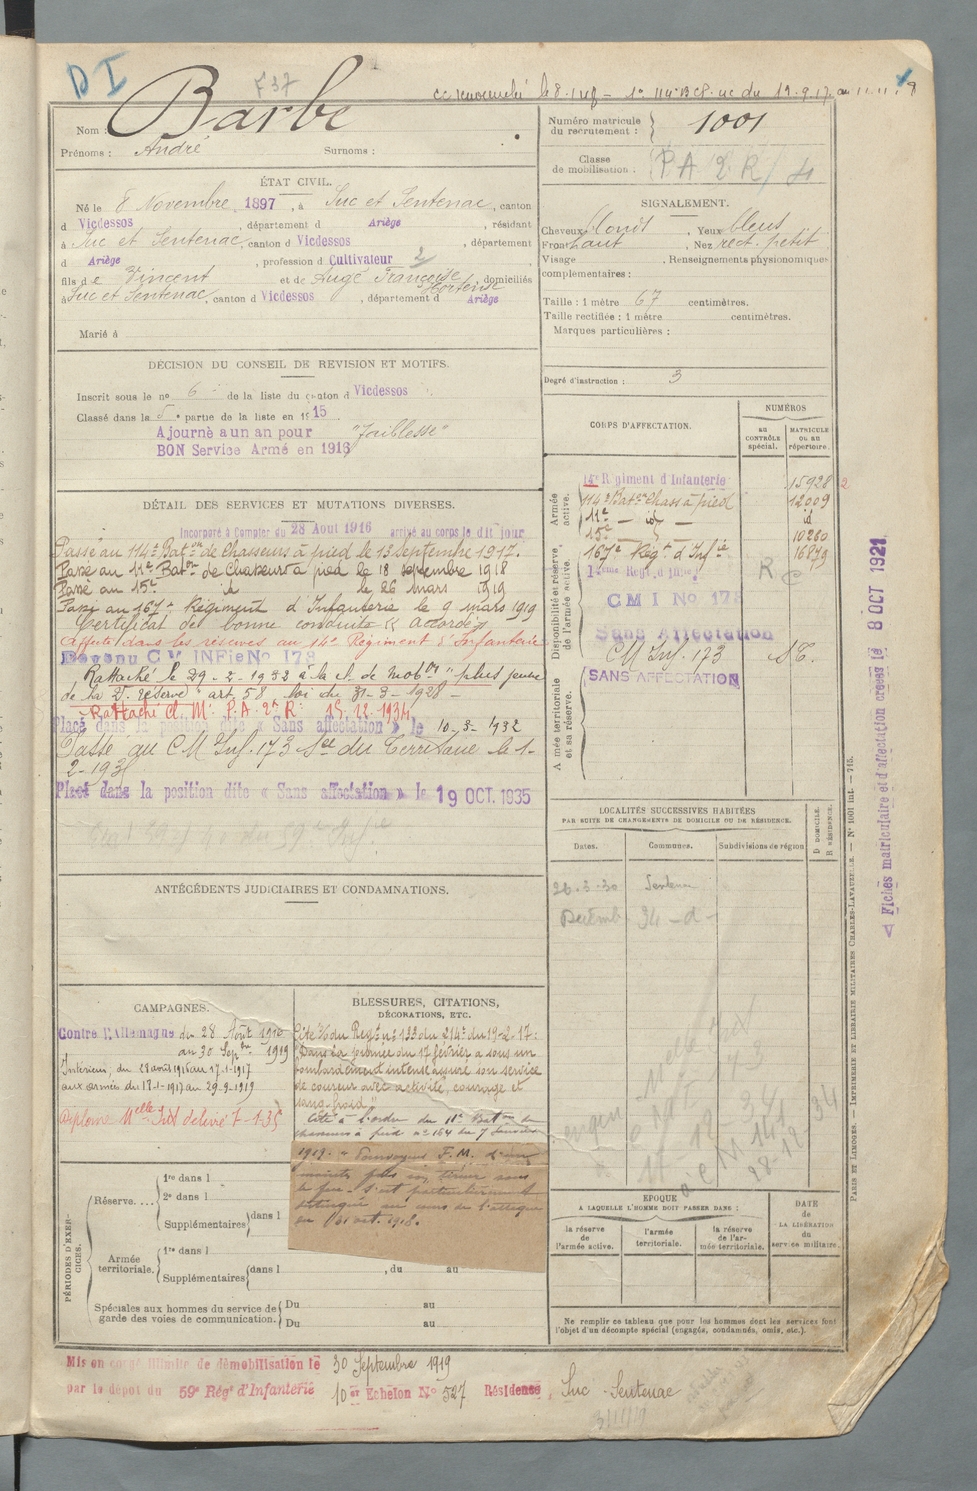 D I
F37
le 8. du 13.9.17 au 11.11.18
Nom : Barbe
Prénoms : André Surnoms :
Numéro matricule du recrutement : 1001
Classe de mobilisation : P A 2 R / 4
ÉTAT CIVIL.
Né le 8 Novembre 1897, à Suc et Sentenac, canton
d Vicdessos, département d Ariège, résidant
à Suc et Sentenac, canton d Vicdessos, département
d Ariège, profession d Cultivateur 2
fils de Vincent et de Augé Françoise Hortense, domiciliés
à Suc et Sentenac, canton d Vicdessos, département d Ariège
Marié à
SIGNALEMENT.
Cheveux blonds, Yeux bleus
Front haut, Nez rect. petit
Visage , Renseignements physionomiques
complémentaires :
Taille : 1 mètre 67 centimètres.
Taille rectifiée : 1 mètre centimètres.
Marques particulières :
Degré d'instruction : 3
DÉCISION DU CONSEIL DE REVISION ET MOTIFS.
Inscrit sous le no 6 de la liste du canton d Vicdessos
Classé dans la 5e partie de la liste en 1915
Ajourné a un an pour "faiblesse"
BON Service Armé en 1916
DÉTAIL DES SERVICES ET MUTATIONS DIVERSES.
Incorporé à Compter du 28 Aout 1916 arrivé au corps le dit jour
Passé au 114e Baton de Chasseurs à pied le 13 Septembre 1917.
Passé au 11e Baton de Chasseurs à pied le 18 septembre 1918
Passé au 15e id le 26 mars 1919
Passé au 167e Régiment d'Infanterie le 9 mars 1919
Certificat de bonne conduite "accordé"
Affecté dans les réserves au 14e Régiment d'Infanterie
Devenu C M INFie No 173
Rattaché le 29-2-1932 à la cl. de Mobon "plus jeune
de la 2e réserve" art. 58 loi du 31-3-1928 -
Rattaché Cl. M: P.A. 2e R: 15.12.1934
Placé dans la position dite « Sans affectation » le 10-3-1932
Passé au C M Inf. 173 le 1-
2-193
Placé dans la position dite « Sans affectation » le 19 OCT. 1935
CORPS D'AFFECTATION.
NUMÉROS
AU CONTRÔLE spécial.
MATRICULE OU AU répertoire.
Armée active.
14e Régiment d'Infanterie 15928 2
114e Baton Chass à pied 12009
11e — id — id
15e 10260
167e Régt d'Infie 16873
Disponibilité et réserve de l'armée active.
R C
CMI No 173
Sans Affectation
CM Inf. 173
Armée territoriale et sa réserve.
SANS AFFECTATION
LOCALITÉS SUCCESSIVES HABITÉES
PAR SUITE DE CHANGEMENTS DE DOMICILE OU DE RÉSIDENCE.
Dates. Communes. Subdivisions de région
D DOMICILE.
R RÉSIDENCE.
26-3-30 Sentenac
Décemb 34 -d-
ANTÉCÉDENTS JUDICIAIRES ET CONDAMNATIONS.
CAMPAGNES.
Contre l'Allemagne du 28 Août 1916
au 30 Sepbre 1919
Intérieur, du 28 août 1916 au 17-1-1917
aux armées du 18-1-1917 au 29-9-1919
Diplome Melle Ind délivré 7-1-35
BLESSURES, CITATIONS,
DÉCORATIONS, ETC.
Cité % du Régt no 133 du 214e du 19-2-17:
"Dans la journée du 17 février a sous un
bombardement intense assuré son service
de coureur avec activité, courage et
sang-froid."
Cité à l'ordre du 11e Baton de
chasseurs à pied no 164 du 7 Janvier
1919. "Pourvoyeur F.M. d'une
sous
le feu. S'est particulièrement
distingué au cours de l'attaque
du 31 oct. 1918.
Melle
PÉRIODES D'EXERCICES.
Réserve....
1re dans l
2e dans l
Supplémentaires dans l
Armée territoriale.
1re dans l
Supplémentaires dans l , du au
Spéciales aux hommes du service de
garde des voies de communication.
Du au
Du au
ÉPOQUE
A LAQUELLE L'HOMME DOIT PASSER DANS :
la réserve de l'armée active.
l'armée territoriale.
la réserve de l'armée territoriale.
DATE de LA LIBÉRATION du service militaire.
Ne remplir ce tableau que pour les hommes dont les services font
l'objet d'un décompte spécial (engagés, condamnés, omis, etc.).
Mis en congé illimité de démobilisation le 30 Septembre 1919
par le dépôt du 59e Régt d'Infanterie 10er Echelon No 527 Résidence, Suc Sentenac
PARIS ET LIMOGES. — IMPRIMERIE ET LIBRAIRIE MILITAIRES CHARLES-LAVAUZELLE. — No 1001 int. — 715.
Fiches matriculaire et d'affectation créées le 8 OCT 1921